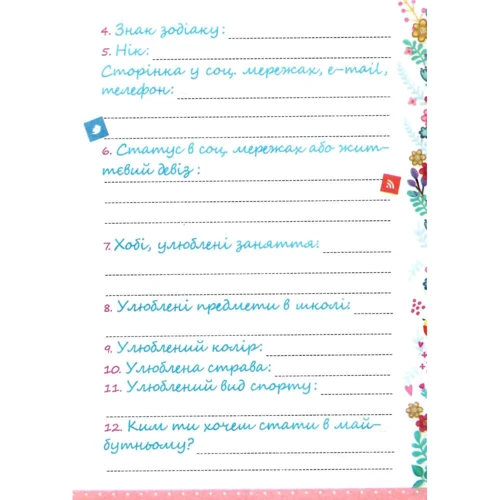 4. Знак зодіаку:
5. Нік:
Сторінка у соц. мережах, e-mail,
телефон:
6. Статус в соц. мережах або жит-
тєвий девіз:
7. Хобі, улюблені заняття:
8. Улюблені предмети в школі:
9. Улюблений колір:
10. Улюблена страва:
11. Улюблений вид спорту:
12. Ким ти хочеш стати в май-
бутньому?